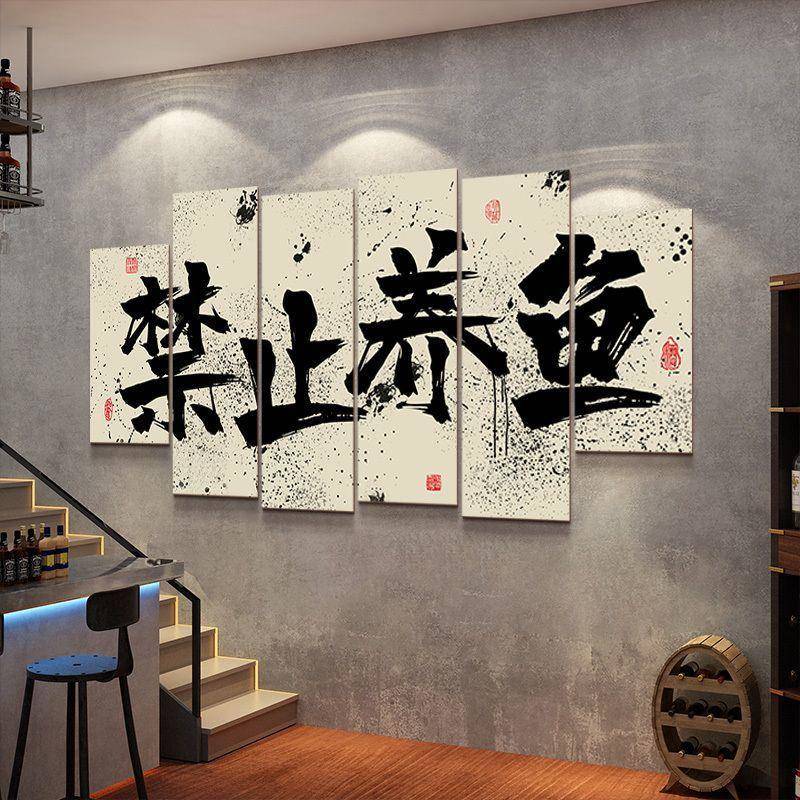 禁止养鱼